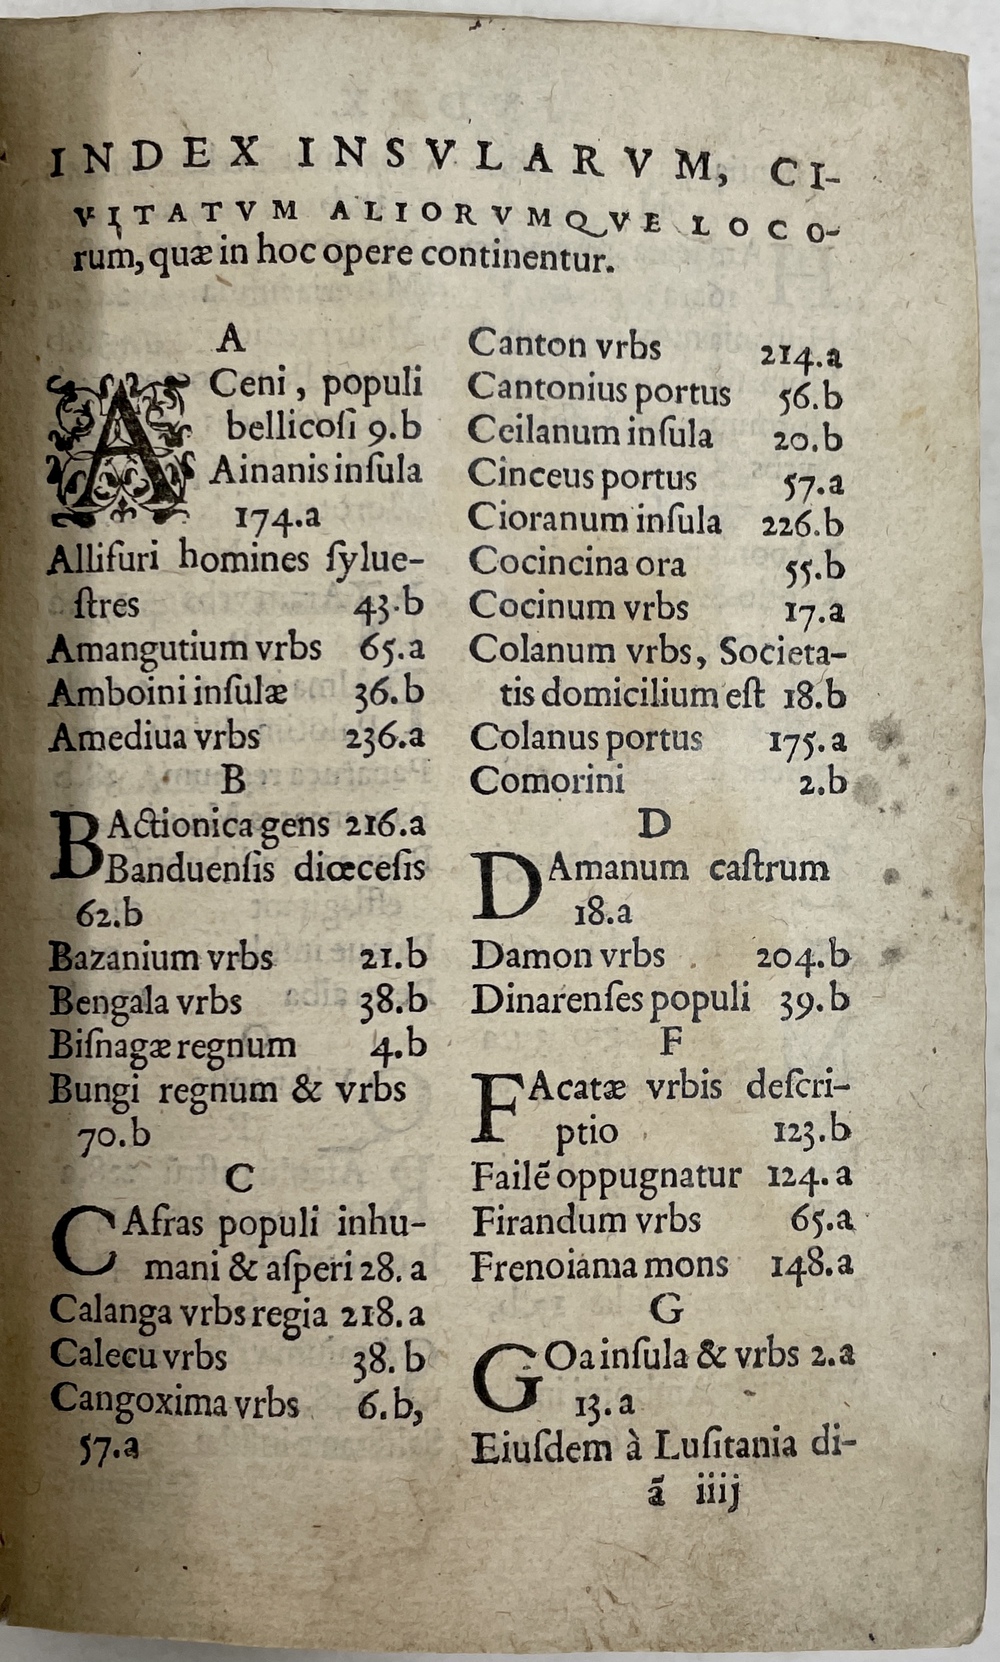 INDEX INSVLARVM, CI-
VITATVM ALIORVMQVE LOCO-
rum, quæ in hoc opere continentur.
A
ACeni, populi
bellicoſi 9.b
Ainanis inſula
174.a
Alliſuri homines ſylue-
ſtres 43.b
Amangutium vrbs 65.a
Amboini inſulæ 36.b
Amediua vrbs 236.a
B
BActionica gens 216.a
Banduenſis diœceſis
62.b
Bazanium vrbs 21.b
Bengala vrbs 38.b
Biſnagæ regnum 4.b
Bungi regnum & vrbs
70.b
C
CAfras populi inhu-
mani & aſperi 28.a
Calanga vrbs regia 218.a
Calecu vrbs 38.b
Cangoxima vrbs 6.b,
57.a
Canton vrbs 214.a
Cantonius portus 56.b
Ceilanum inſula 20.b
Cinceus portus 57.a
Cioranum inſula 226.b
Cocincina ora 55.b
Cocinum vrbs 17.a
Colanum vrbs, Societa-
tis domicilium eſt 18.b
Colanus portus 175.a
Comorini 2.b
D
DAmanum caſtrum
18.a
Damon vrbs 204.b
Dinarenſes populi 39.b
F
FAcatæ vrbis deſcri-
ptio 123.b
Failẽ oppugnatur 124.a
Firandum vrbs 65.a
Frenoiama mons 148.a
G
GOa inſula & vrbs 2.a
13.a
Eiuſdem à Luſitania di-
ã iiij